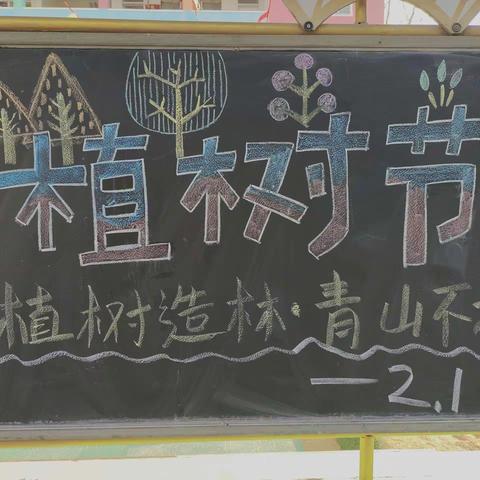 植树节
植树造林·青山不
—2.1